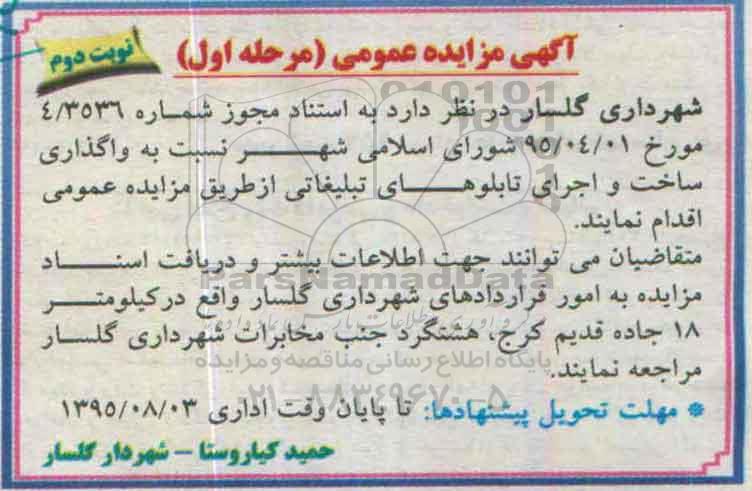 آگهی مزایده عمومی (مرحله اول)
نوبت دوم
شهرداری گلسار در نظر دارد به استناد مجوز شماره ۴/۳۵۳۶
مورخ ۹۵/۰۴/۰۱ شورای اسلامی شهر نسبت به واگذاری
ساخت و اجرای تابلوهای تبلیغاتی ازطریق مزایده عمومی
اقدام نمایند.
متقاضیان می توانند جهت اطلاعات بیشتر و دریافت اسناد
مزایده به امور قراردادهای شهرداری گلسار واقع درکیلومتر
۱۸ جاده قدیم کرج، هشتگرد جنب مخابرات شهرداری گلسار
مراجعه نمایند.
* مهلت تحویل پیشنهادها: تا پایان وقت اداری ۱۳۹۵/۰۸/۰۳
حمید کیاروستا – شهردار گلسار
ParsNamadData
پایگاه اطلاع رسانی مناقصه و مزایده
۰۲۱-۸۸۳۴۹۶۷۰-۵